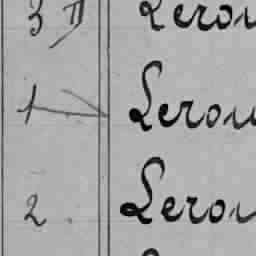 3 11 Lerou
1 Lerou
2. Lerou